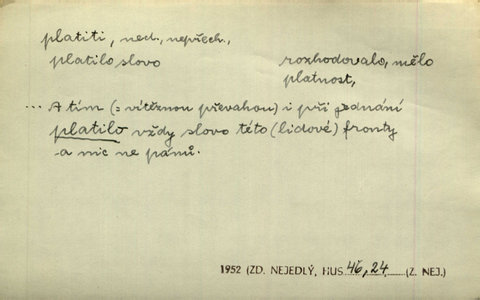 platiti, ned., nepřech.,
platilo slovo rozhodovalo, mělo
platnost,
... A tím (= vítěznou převahou) i při jednání
platilo vždy slovo této (lidové) fronty
a nic ne pánů.
1952 (ZD. NEJEDLÝ, HUS 46, 24 (Z. NEJ.)